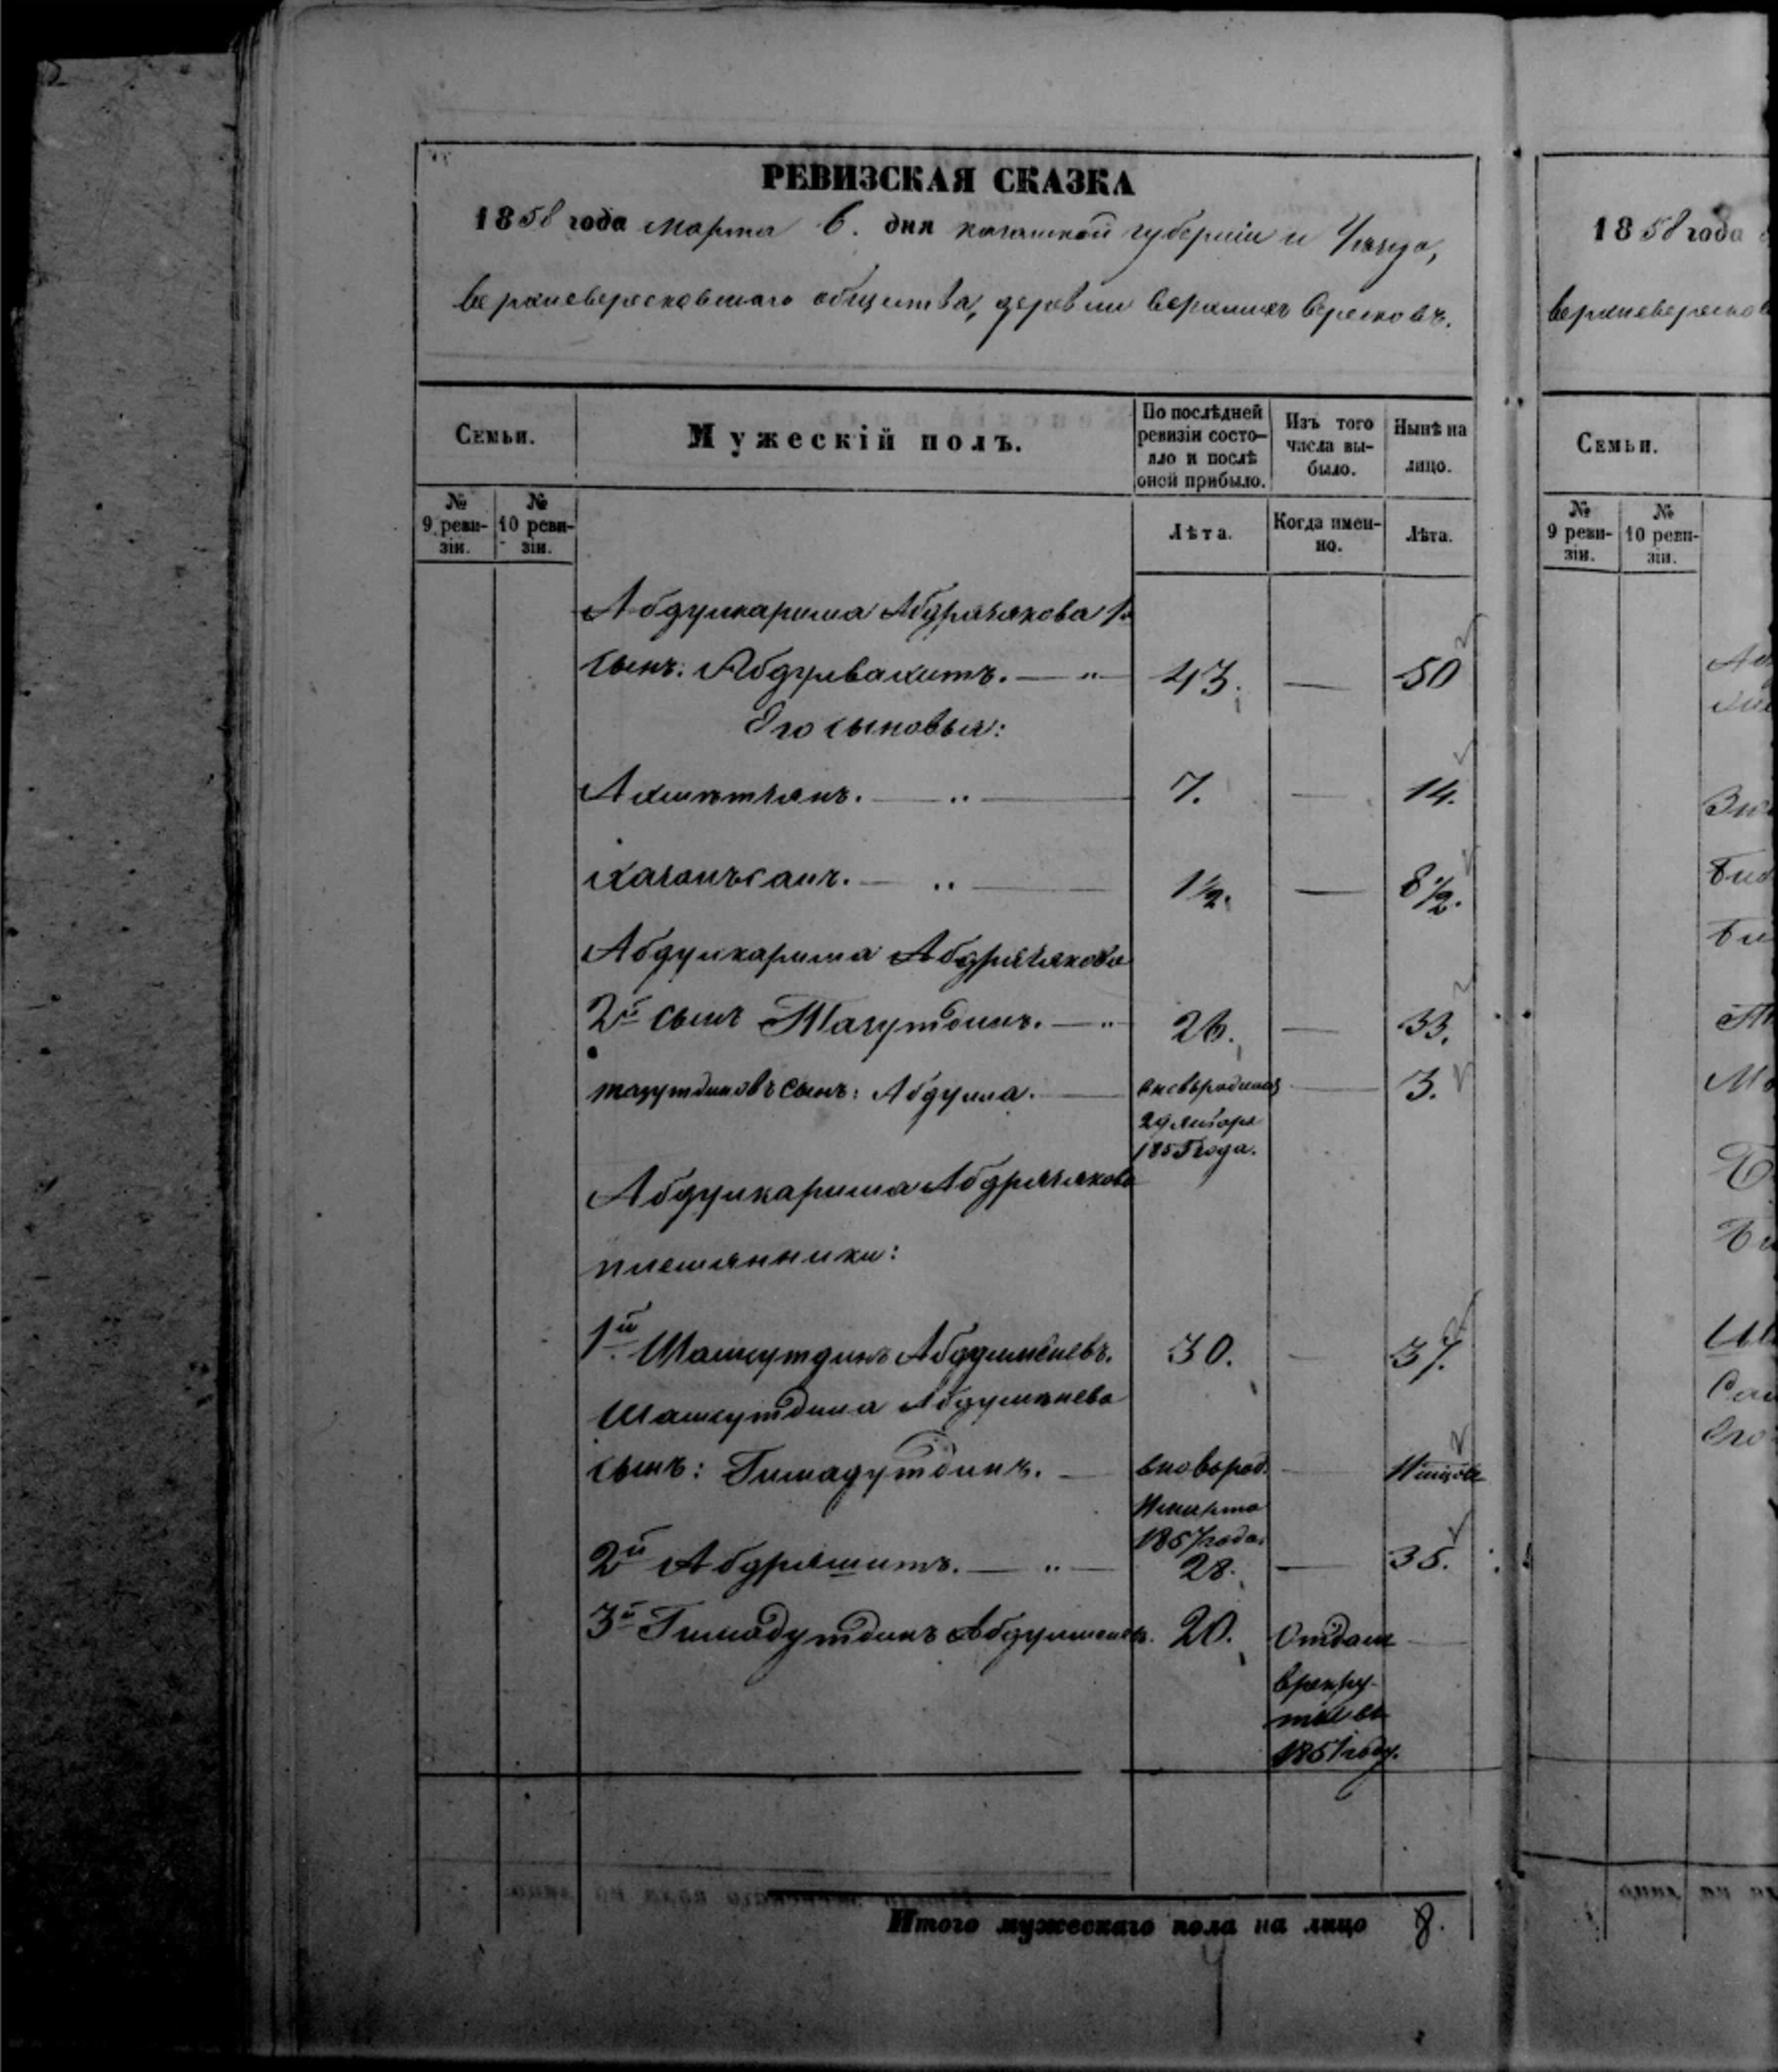 РЕВИЗСКАЯ СКАЗКА
1858 года марта 6. дня казанской губерніи и Уѣзда,
верхневересковскаго общества, деревни верхнихъ Вересковъ.
Семьи.
Мужескій полъ.
По послѣдней ревизіи состояло и послѣ оной прибыло.
Изъ того числа выбыло.
Нынѣ на лицо.
№ 9 ревизіи.
№ 10 ревизіи.
Лѣта.
Когда именно.
Лѣта.
Абдулкарима Абдрязякова 1й
сынъ: Абдулвахитъ. — " — 43. — 50
Его сыновья:
Ахметзянъ. — " — 7. — 14.
Хасанъсанъ. — " — 1½. — 8½.
Абдулкарима Абдрязякова
2й сынъ Тазутдинъ. — " 26. — 33.
тазутдиновъ сынъ: Абдулла. — вновьродился — 3.
29 Января
1855 года.
Абдулкарима Абдрязякова
племянники:
1й Шамсутдинъ Абдулменевъ. 30. — 37.
Шамсутдина Абдулменева
сынъ: Гимадутдинъ. — вновьрод. —
марта
1857 года.
2й Абдряшитъ. — " — 28. — 35.
3й Гимадутдинъ Абдулменевъ. 20. Отданъ —
врекру-
ты въ
1851 году.
Итого мужескаго пола на лицо 8.
1858 года
Верхневереско
Семьи.
№ 9 ревизіи.
№ 10 ревизіи.